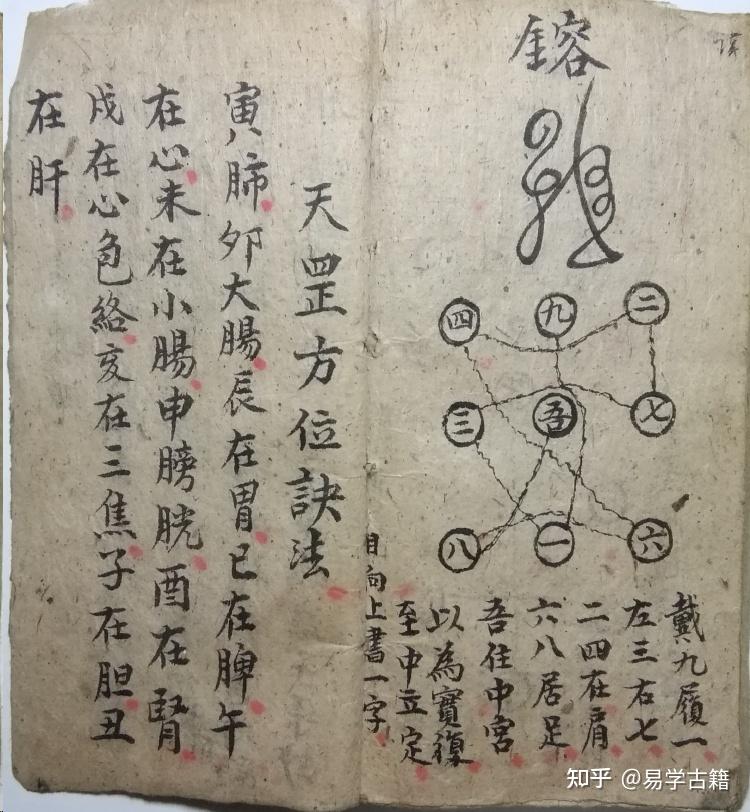 鎔
四 九 二
三 吾 七
八 一 六
戴九履一
左三右七
二四在肩
六八居足
吾住中宮
以為寶復
至中立定
目向上書一字
天罡方位訣法
寅肺夘大腸辰在胃巳在脾午
在心未在小腸申膀胱酉在腎
戌在心色絡亥在三焦子在胆丑
在肝
知乎 @易学古籍